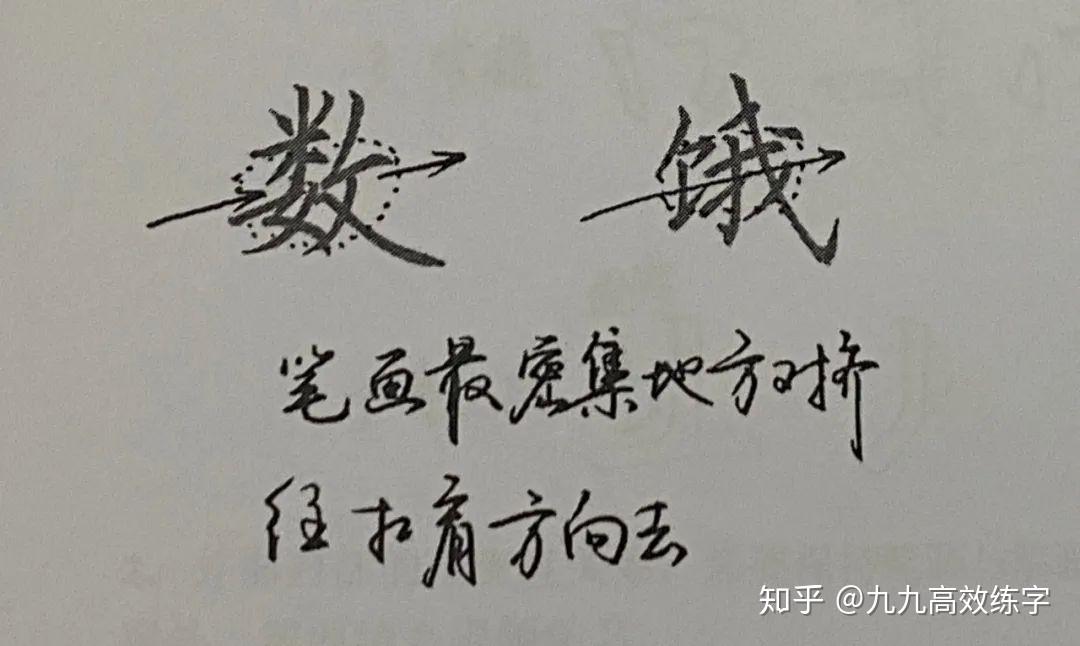 数 饿
笔画最密集地方对挤
往扛肩方向去
知乎 @九九高效练字